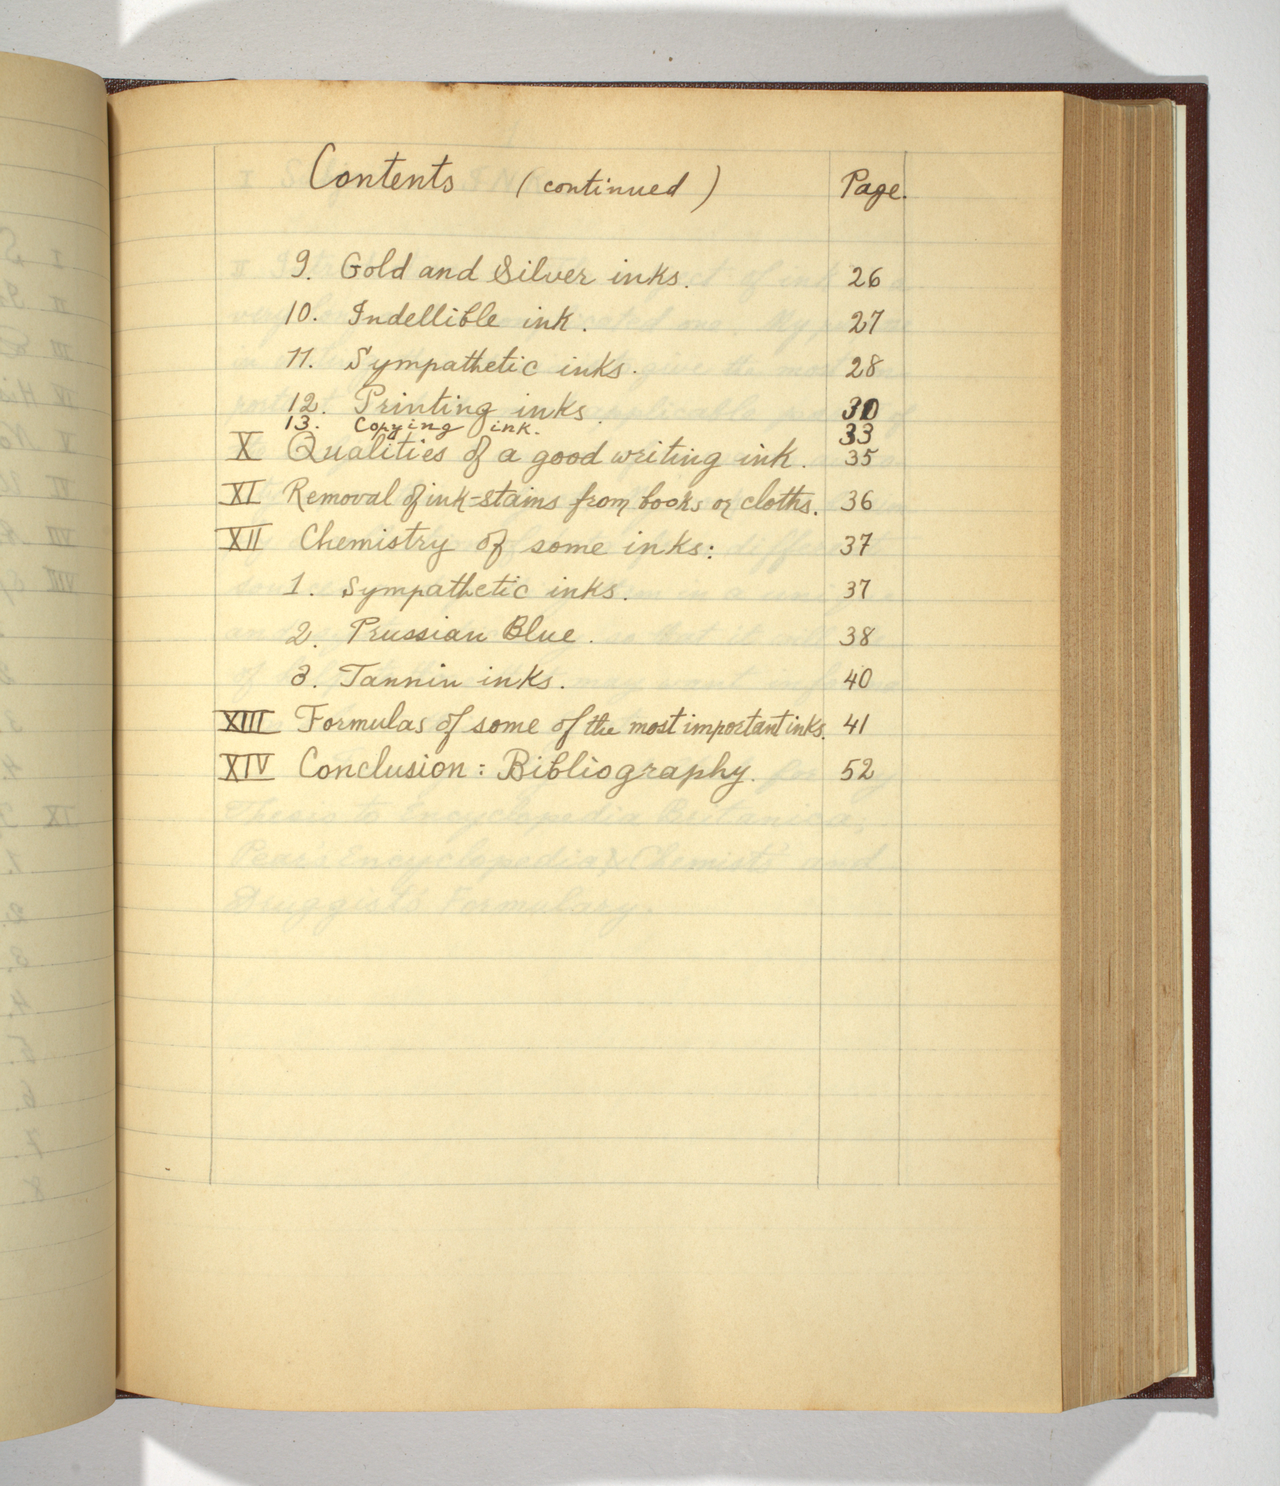 Contents (continued) Page.
9. Gold and Silver inks. 26
10. Indellible ink. 27
11. Sympathetic inks. 28
12. Printing inks. 30
13. Copying ink. 33
X Qualities of a good writing ink. 35
XI Removal of ink-stains from books or cloths. 36
XII Chemistry of some inks: 37
1. Sympathetic inks. 37
2. Prussian Blue. 38
3. Tannin inks. 40
XIII Formulas of some of the most important inks. 41
XIV Conclusion: Bibliography. 52
Thesis to Encyclopedia Britanica,
Pear's Encyclopedia, Chemists and
Druggists Formulary.